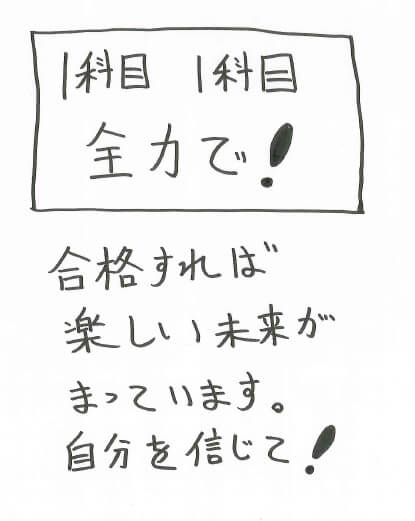 1科目 1科目
全力で!
合格すれば
楽しい未来が
まっています。
自分を信じて!